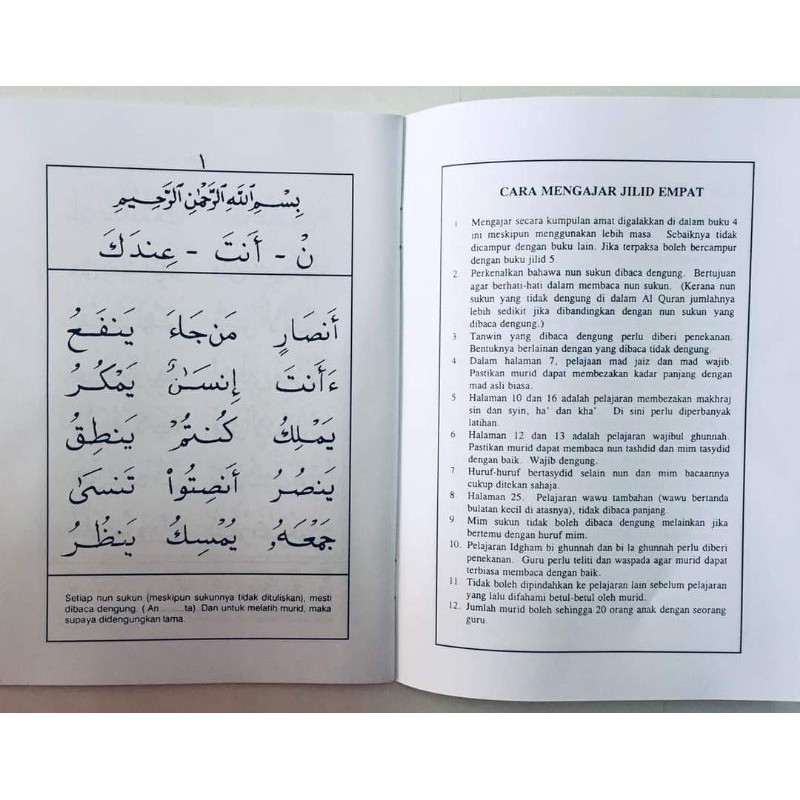 ١
بِسْمِ اللَّهِ الرَّحْمَٰنِ الرَّحِيمِ
نْ - أَنتَ - عِندَكَ
أَنصَارٍ مَن جَاءَ يَنفَعُ
ءَأَنتَ إِنسَـٰنٌ يَمْكُرُ
يَمْلِكُ كُنتُمْ يَنطِقُ
يَنصُرُ أَنصِتُوا۟ تَنسَىٰ
جَمْعَهُۥ يُمْسِكُ يَنظُرُ
Setiap nun sukun (meskipun sukunnya tidak dituliskan), mesti
dibaca dengung. ( An .........ta). Dan untuk melatih murid, maka
supaya didengungkan lama.
CARA MENGAJAR JILID EMPAT
1 Mengajar secara kumpulan amat digalakkan di dalam buku 4
ini meskipun menggunakan lebih masa. Sebaiknya tidak
dicampur dengan buku lain. Jika terpaksa boleh bercampur
dengan buku jilid 5.
2. Perkenalkan bahawa nun sukun dibaca dengung. Bertujuan
agar berhati-hati dalam membaca nun sukun. (Kerana nun
sukun yang tidak dengung di dalam Al Quran jumlahnya
lebih sedikit jika dibandingkan dengan nun sukun yang
dibaca dengung.)
3 Tanwin yang dibaca dengung perlu diberi penekanan.
Bentuknya berlainan dengan yang dibaca tidak dengung.
4 Dalam halaman 7, pelajaan mad jaiz dan mad wajib.
Pastikan murid dapat membezakan kadar panjang dengan
mad asli biasa.
5 Halaman 10 dan 16 adalah pelajaran membezakan makhraj
sin dan syin, ha' dan kha' Di sini perlu diperbanyak
latihan.
6 Halaman 12 dan 13 adalah pelajaran wajibul ghunnah.
Pastikan murid dapat membaca nun tashdid dan mim tasydid
dengan baik. Wajib dengung.
7 Huruf-huruf bertasydid selain nun dan mim bacaannya
cukup ditekan sahaja.
8 Halaman 25. Pelajaran wawu tambahan (wawu bertanda
bulatan kecil di atasnya), tidak dibaca panjang.
9 Mim sukun tidak boleh dibaca dengung melainkan jika
bertemu dengan huruf mim.
10. Pelajaran Idgham bi ghunnah dan bi la ghunnah perlu diberi
penekanan. Guru perlu teliti dan waspada agar murid dapat
terbiasa membaca dengan baik.
11. Tidak boleh dipindahkan ke pelajaran lain sebelum pelajaran
yang lalu difahami betul-betul oleh murid.
12. Jumlah murid boleh sehingga 20 orang anak dengan seorang
guru.